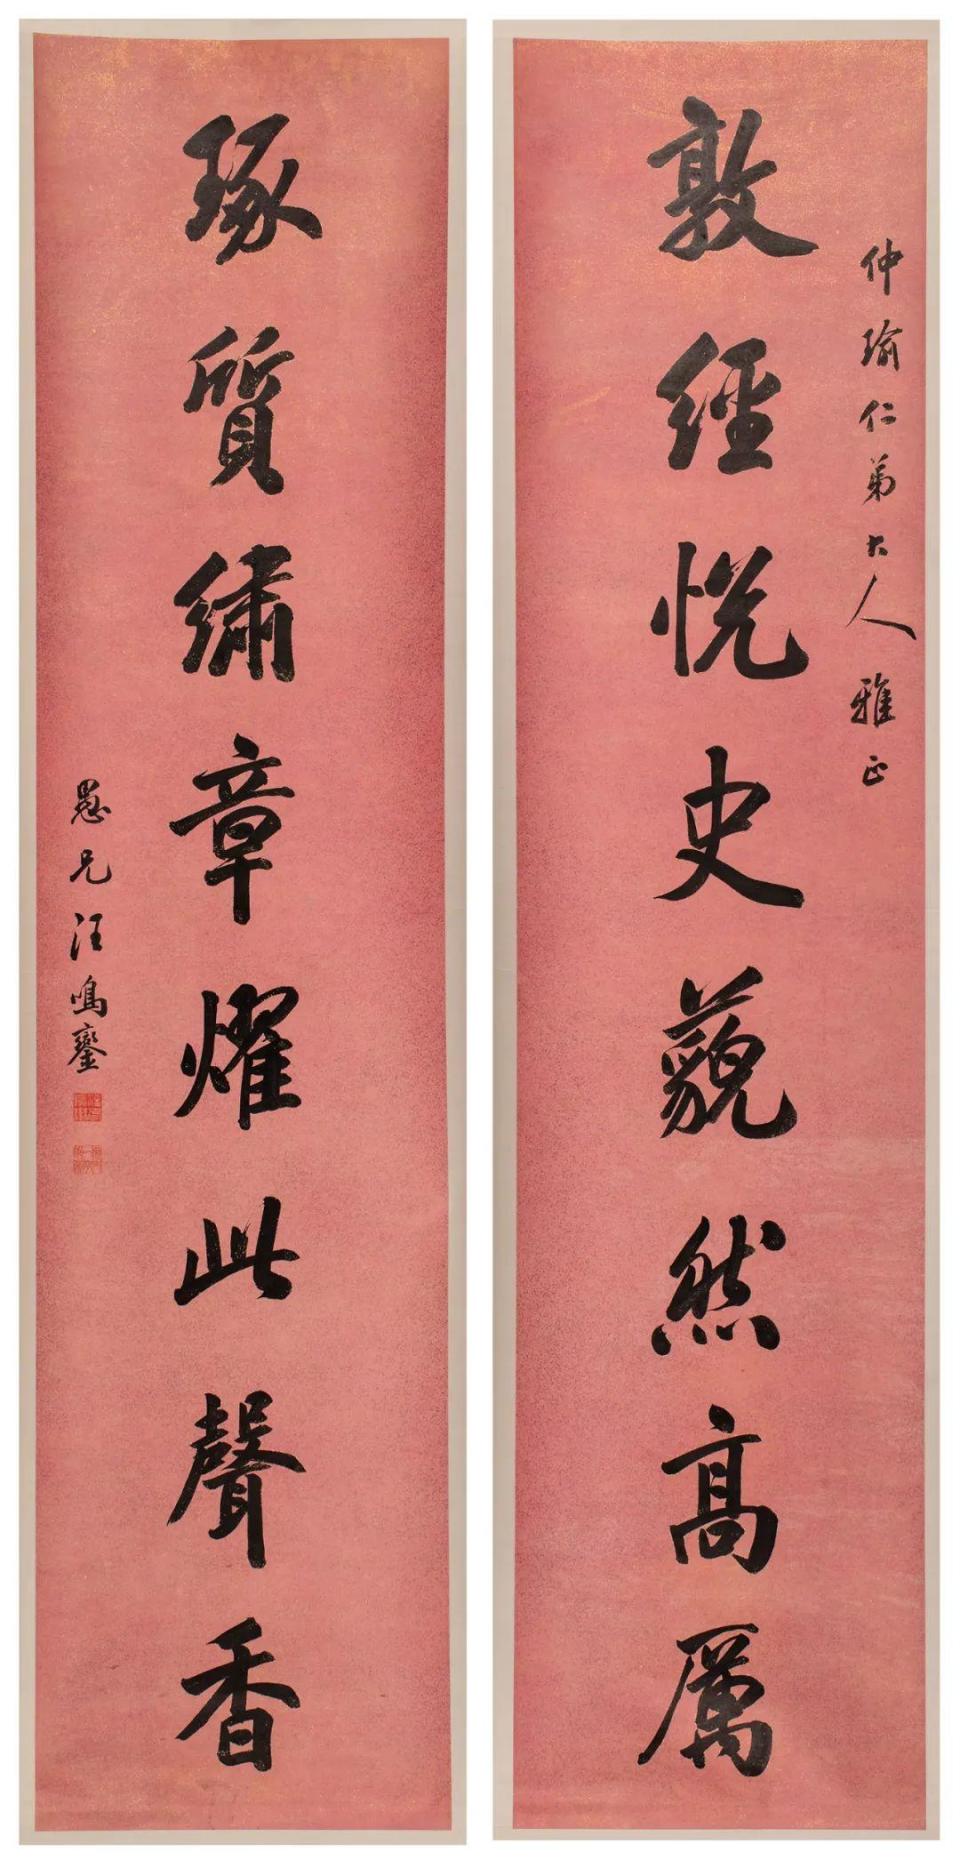 仲瑜仁弟大人雅正
敦經悅史藐然高厲
琢質繡章燿此聲香
愚兄汪鳴鑾